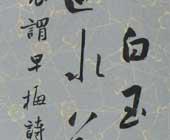 白玉
近水
謂早梅詩